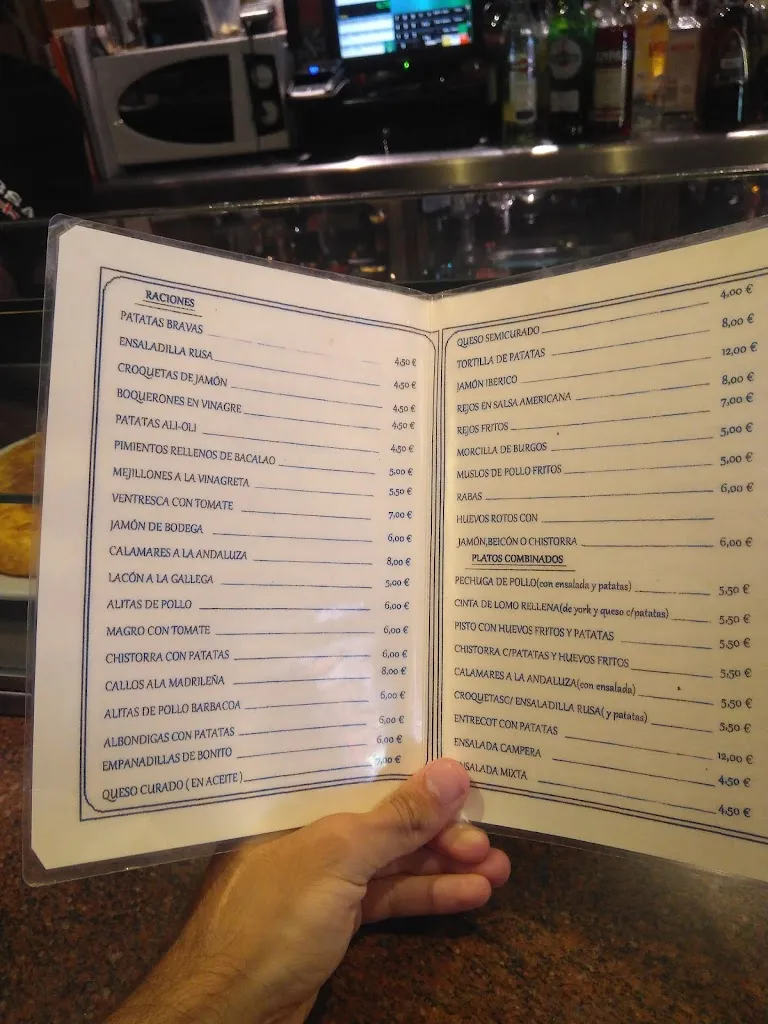 RACIONES
PATATAS BRAVAS 4,50 €
ENSALADILLA RUSA 4,50 €
CROQUETAS DE JAMÓN 4,50 €
BOQUERONES EN VINAGRE 4,50 €
PATATAS ALI-OLI 4,50 €
PIMIENTOS RELLENOS DE BACALAO 5,00 €
MEJILLONES A LA VINAGRETA 5,50 €
VENTRESCA CON TOMATE 7,00 €
JAMÓN DE BODEGA 6,00 €
CALAMARES A LA ANDALUZA 8,00 €
LACÓN A LA GALLEGA 5,00 €
ALITAS DE POLLO 6,00 €
MAGRO CON TOMATE 6,00 €
CHISTORRA CON PATATAS 6,00 €
CALLOS ALA MADRILEÑA 8,00 €
ALITAS DE POLLO BARBACOA 6,00 €
ALBONDIGAS CON PATATAS 6,00 €
EMPANADILLAS DE BONITO 6,00 €
QUESO CURADO ( EN ACEITE ) 7,00 €
QUESO SEMICURADO 4,00 €
TORTILLA DE PATATAS 8,00 €
JAMÓN IBERICO 12,00 €
REJOS EN SALSA AMERICANA 8,00 €
REJOS FRITOS 7,00 €
MORCILLA DE BURGOS 5,00 €
MUSLOS DE POLLO FRITOS 5,00 €
RABAS 6,00 €
HUEVOS ROTOS CON
JAMÓN,BEICÓN O CHISTORRA 6,00 €
PLATOS COMBINADOS
PECHUGA DE POLLO(con ensalada y patatas) 5,50 €
CINTA DE LOMO RELLENA(de york y queso c/patatas) 5,50 €
PISTO CON HUEVOS FRITOS Y PATATAS 5,50 €
CHISTORRA C/PATATAS Y HUEVOS FRITOS 5,50 €
CALAMARES A LA ANDALUZA(con ensalada) 5,50 €
CROQUETASC/ ENSALADILLA RUSA( y patatas) 5,50 €
ENTRECOT CON PATATAS 12,00 €
ENSALADA CAMPERA 4,50 €
NSALADA MIXTA 4,50 €